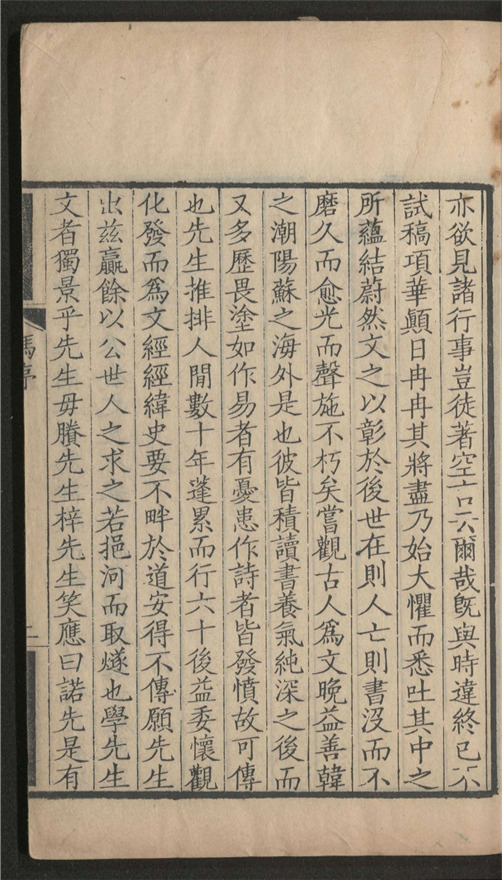 亦欲見諸行事豈徒著空言云爾哉旣與時違終已不
試稿項華顛日冉冉其將盡乃始大懼而悉吐其中之
所蘊結蔚然文之以彰於後世在則人亡則書沒而不
磨久而愈光而聲施不朽矣嘗觀古人爲文晚益善韓
之潮陽蘇之海外是也彼皆積讀書養氣純深之後而
又多歷畏塗如作易者有憂患作詩者皆發憤故可傳
也先生推排人閒數十年蓬累而行六十後益委懷觀
化發而爲文經經緯史要不畔於道安得不傳願先生
出兹贏餘以公世人之求之若挹河而取燧也學先生
文者獨景乎先生毋賸先生梓先生笑應曰諾先是有